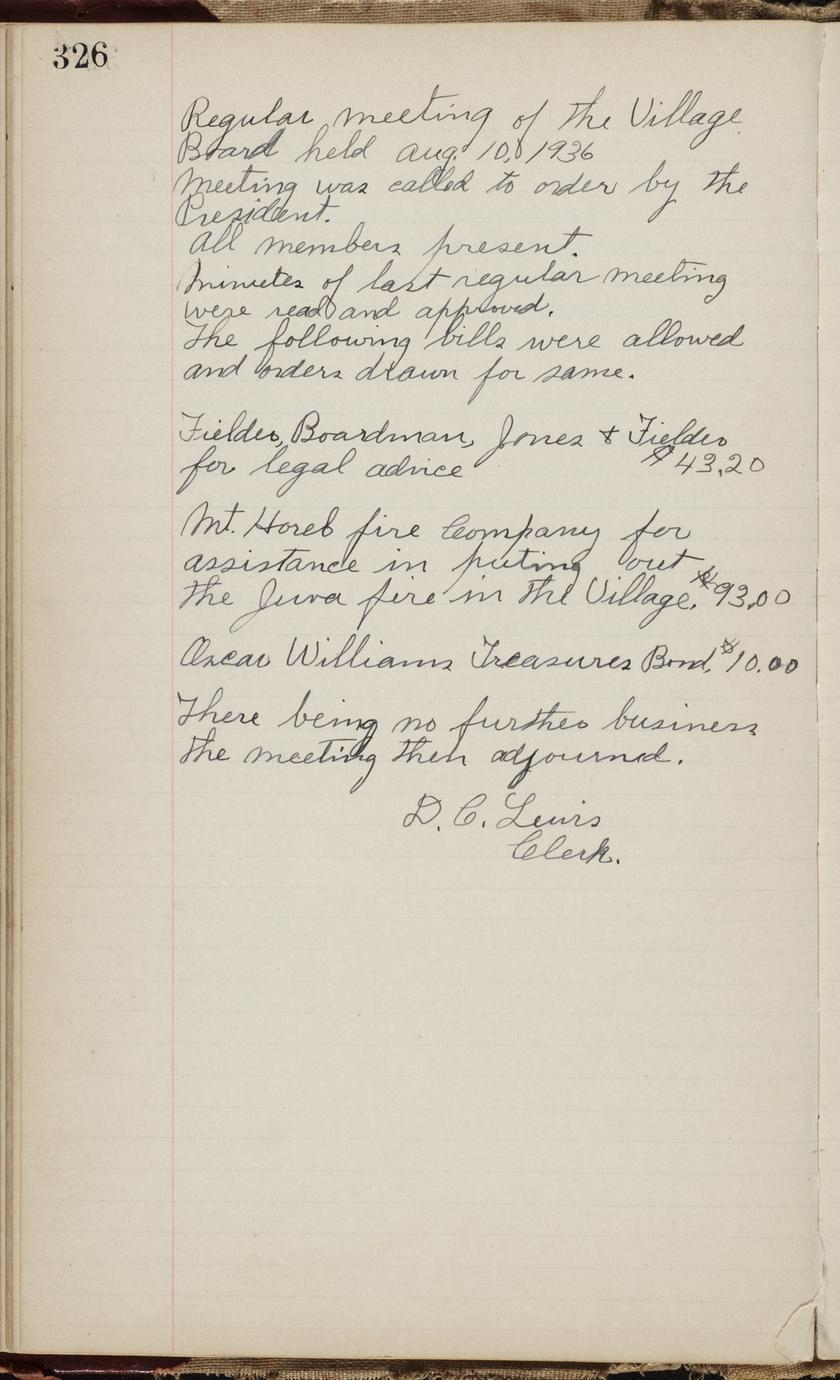 326
Regular meeting of the Village
Board held Aug. 10, 1936
Meeting was called to order by the
President.
All members present.
Minutes of last regular meeting
were read and approved.
The following bills were allowed
and orders drawn for same.
Fielder, Boardman, Jones & Fielder
for legal advice $43.20
Mt. Horeb fire Company for
assistance in puting out
the Juva fire in the Village. $93.00
Oscar Williams Treasures Bond, $10.00
There being no further business
the meeting then adjourned.
D. C. Lewis
Clerk.